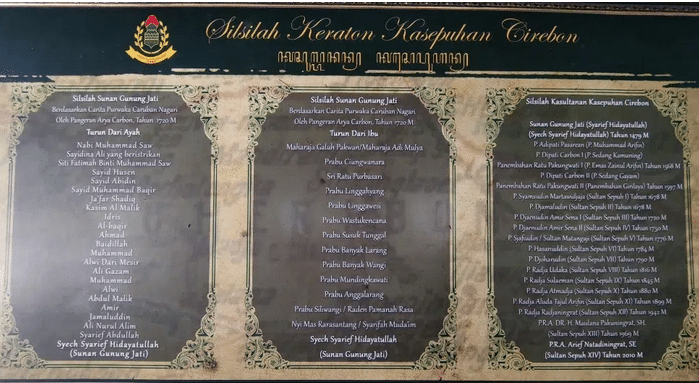 Silsilah Keraton Kasepuhan Cirebon
Silsilah Sunan Gunung Jati
Berdasarkan Carita Purwaka Caruban Nagari
Oleh Pangeran Arya Carbon, Tahun 1720 M
Turun Dari Ayah
Nabi Muhammad Saw
Sayidina Ali yang beristrikan
Siti Fatimah Binti Muhammad Saw
Sayid Husen
Sayid Abidin
Sayid Muhammad Baqir
Ja'far Shadiq
Kasim Al Malik
Idris
Al-baqir
Ahmad
Baidillah
Muhammad
Alwi Dari Mesir
Ali Gazam
Muhammad
Alwi
Abdul Malik
Amir
Jamaluddin
Ali Nurul Alim
Syarief Abdullah
Syech Syarief Hidayatullah
(Sunan Gunung Jati)
Silsilah Sunan Gunung Jati
Berdasarkan Carita Purwaka Caruban Nagari
Oleh Pangeran Arya Carbon, Tahun 1720 M
Turun Dari Ibu
Maharaja Galuh Pakwan/Maharaja Adi Mulya
Prabu Ciungwanara
Sri Ratu Purbasari
Prabu Linggahyang
Prabu Linggawesi
Prabu Wastukencana
Prabu Susuk Tunggal
Prabu Banyak Larang
Prabu Banyak Wangi
Prabu Mundingkawati
Prabu Anggalarang
Prabu Siliwangi / Raden Pamanah Rasa
Nyi Mas Rarasantang / Syarifah Mudaim
Syech Syarief Hidayatullah
(Sunan Gunung Jati)
Silsilah Kasultanan Kasepuhan Cirebon
Sunan Gunung Jati (Syarief Hidayatullah)
(Syech Syarief Hidayatullah) Tahun 1479 M
P. Adipati Pasarean (P. Muhammad Arifin)
P. Dipati Carbon I (P. Sedang Kamuning)
Panembahan Ratu Pakungwati I (P. Emas Zainul Arifin) Tahun 1568 M
P. Dipati Carbon II (P. Sedang Gayam)
Panembahan Ratu Pakungwati II (Panembahan Girilaya) Tahun 1597 M
P. Syamsudin Martawidjaja (Sultan Sepuh I) Tahun 1678 M
P. Djamaludin (Sultan Sepuh II) Tahun 1678 M
P. Djaenudin Amir Sena I (Sultan Sepuh III) Tahun 1710 M
P. Djaenudin Amir Sena II (Sultan Sepuh IV) Tahun 1750 M
P. Sjafiudin / Sultan Matangaji (Sultan Sepuh V) Tahun 1776 M
P. Hasanuddin (Sultan Sepuh VI) Tahun 1784 M
P. Djoharudin (Sultan Sepuh VII) Tahun 1790 M
P. Radja Udaka (Sultan Sepuh VIII) Tahun 1816 M
P. Radja Sulaeman (Sultan Sepuh IX) Tahun 1845 M
P. Radja Atmadja (Sultan Sepuh X) Tahun 1880 M
P. Radja Aluda Tajul Arifin (Sultan Sepuh XI) Tahun 1899 M
P. Radja Radjaningrat (Sultan Sepuh XII) Tahun 1942 M
P.R.A. DR. H. Maulana Pakuningrat, SH.
(Sultan Sepuh XIII) Tahun 1969 M
P.R.A. Arief Natadiningrat, SE
(Sultan Sepuh XIV) Tahun 2010 M